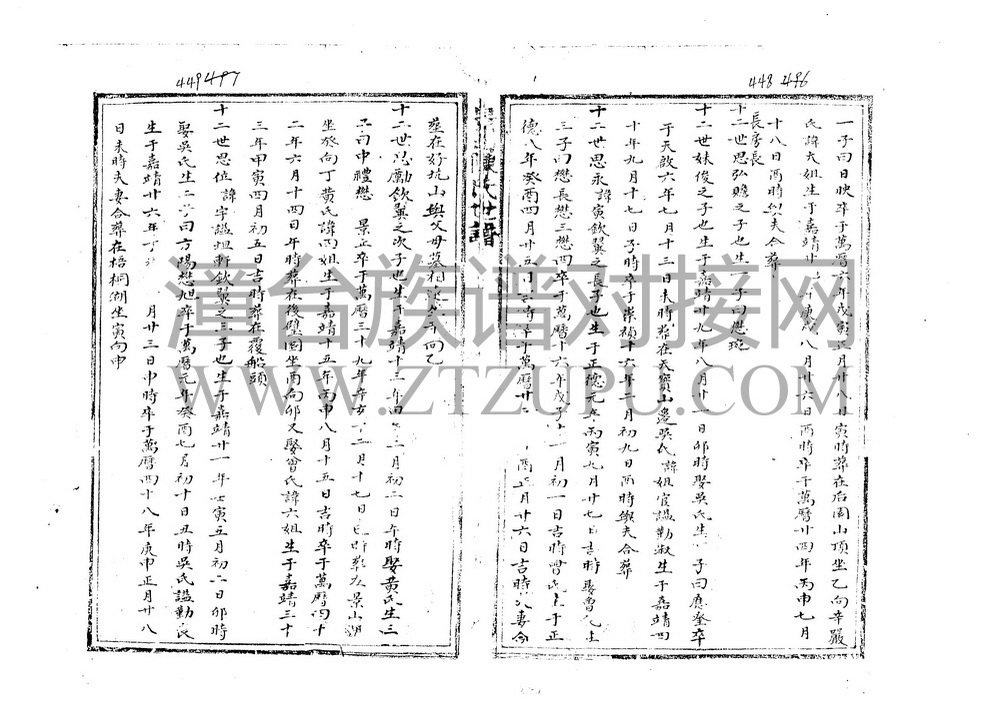 448 486
一子曰日映卒于萬曆六年戊寅 月廿八日寅時葬在后園山頂坐乙向辛嚴
氏諱大姐生于嘉靖廿 庚戌八月廿六日酉時卒于萬曆廿四年丙申七月
十八日酉時與夫合葬
長房長
十二世思弘贍之子也生一子曰應琁
十二世妹俊之子也生于嘉靖廿九年八月廿一日卯時娶吳氏生 子曰應奎卒
于天啟六年七月十三日未時葬在天寶山邊吳氏諱姐官謚勤淑生于嘉靖四
十年九月十七日子時卒于崇禎十六年二月初九日酉時與夫合葬
十二世思永諱寅欽翼之長子也生于正德元年丙寅九月廿七日吉時娶曾氏生
三子曰懋長懋三懋四卒于萬曆十六年戊子十一月初一日吉時曾氏生于正
德八年癸酉四月廿五日 時卒于萬曆廿 酉 月廿六日吉時 妻合
氏世譜
449 487
塟在好坑山與父母墓相 向乙
十二世思勵欽翼之次子也生于嘉靖十三年 二月初二日午時娶黃氏生三
子曰中禮懋 景正卒于萬曆三十九年 十二月十七日巳時葬在景山湖
坐癸向丁黃氏諱四姐生于嘉靖十五年丙申八月十五日吉時卒于萬曆四十
二年六月十四日午時葬在後壁園坐酉向卯又娶曾氏諱六姐生于嘉靖三十
三年甲寅四月初五日吉時葬在覆船頭
十二世思位諱宇謚坦軒欽翼之三子也生于嘉靖廿一年壬寅五月初六日卯時
娶吳氏生二子曰方陽懋旭卒于萬曆元年癸酉七月初十日丑時吳氏謚勤民
生于嘉靖廿六年丁 月廿三日申時卒于萬曆四十八年庚申正月廿八
日未時夫妻合葬在梧桐湖坐寅向申
漳台族谱对接网
WWW.ZTZUPU.COM